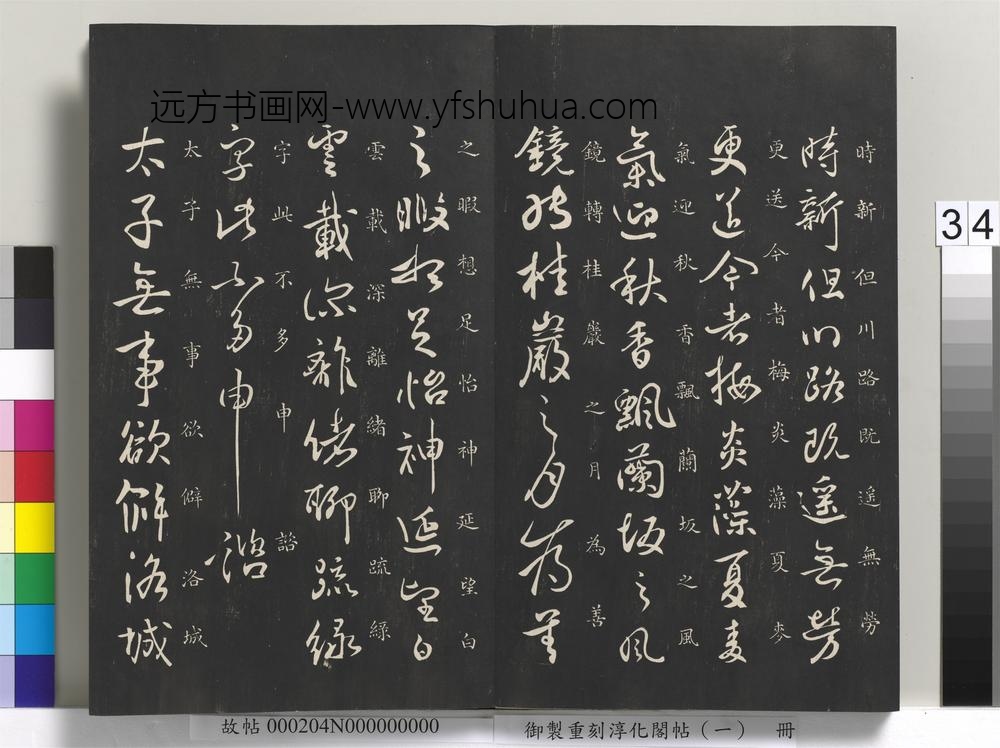 远方书画网-www.yfshuhua.com
時新但川路既遥無勞
時新但川路既遥無勞
更送今者梅炎藻夏麥
更送今者梅炎藻夏麥
氣迎秋香飄蘭坂之風
氣迎秋香飄蘭坂之風
鏡轉桂巖之月為善
鏡轉桂巖之月為善
之暇想足怡神延望白
之暇想足怡神延望白
雲載深離緒聊疏緑
雲載深離緒聊疏緑
字此不多申諮
字此不多申諮
太子無事欲僻洛城
太子無事欲僻洛城
34
故帖000204N000000000
御製重刻淳化閣帖(一) 冊